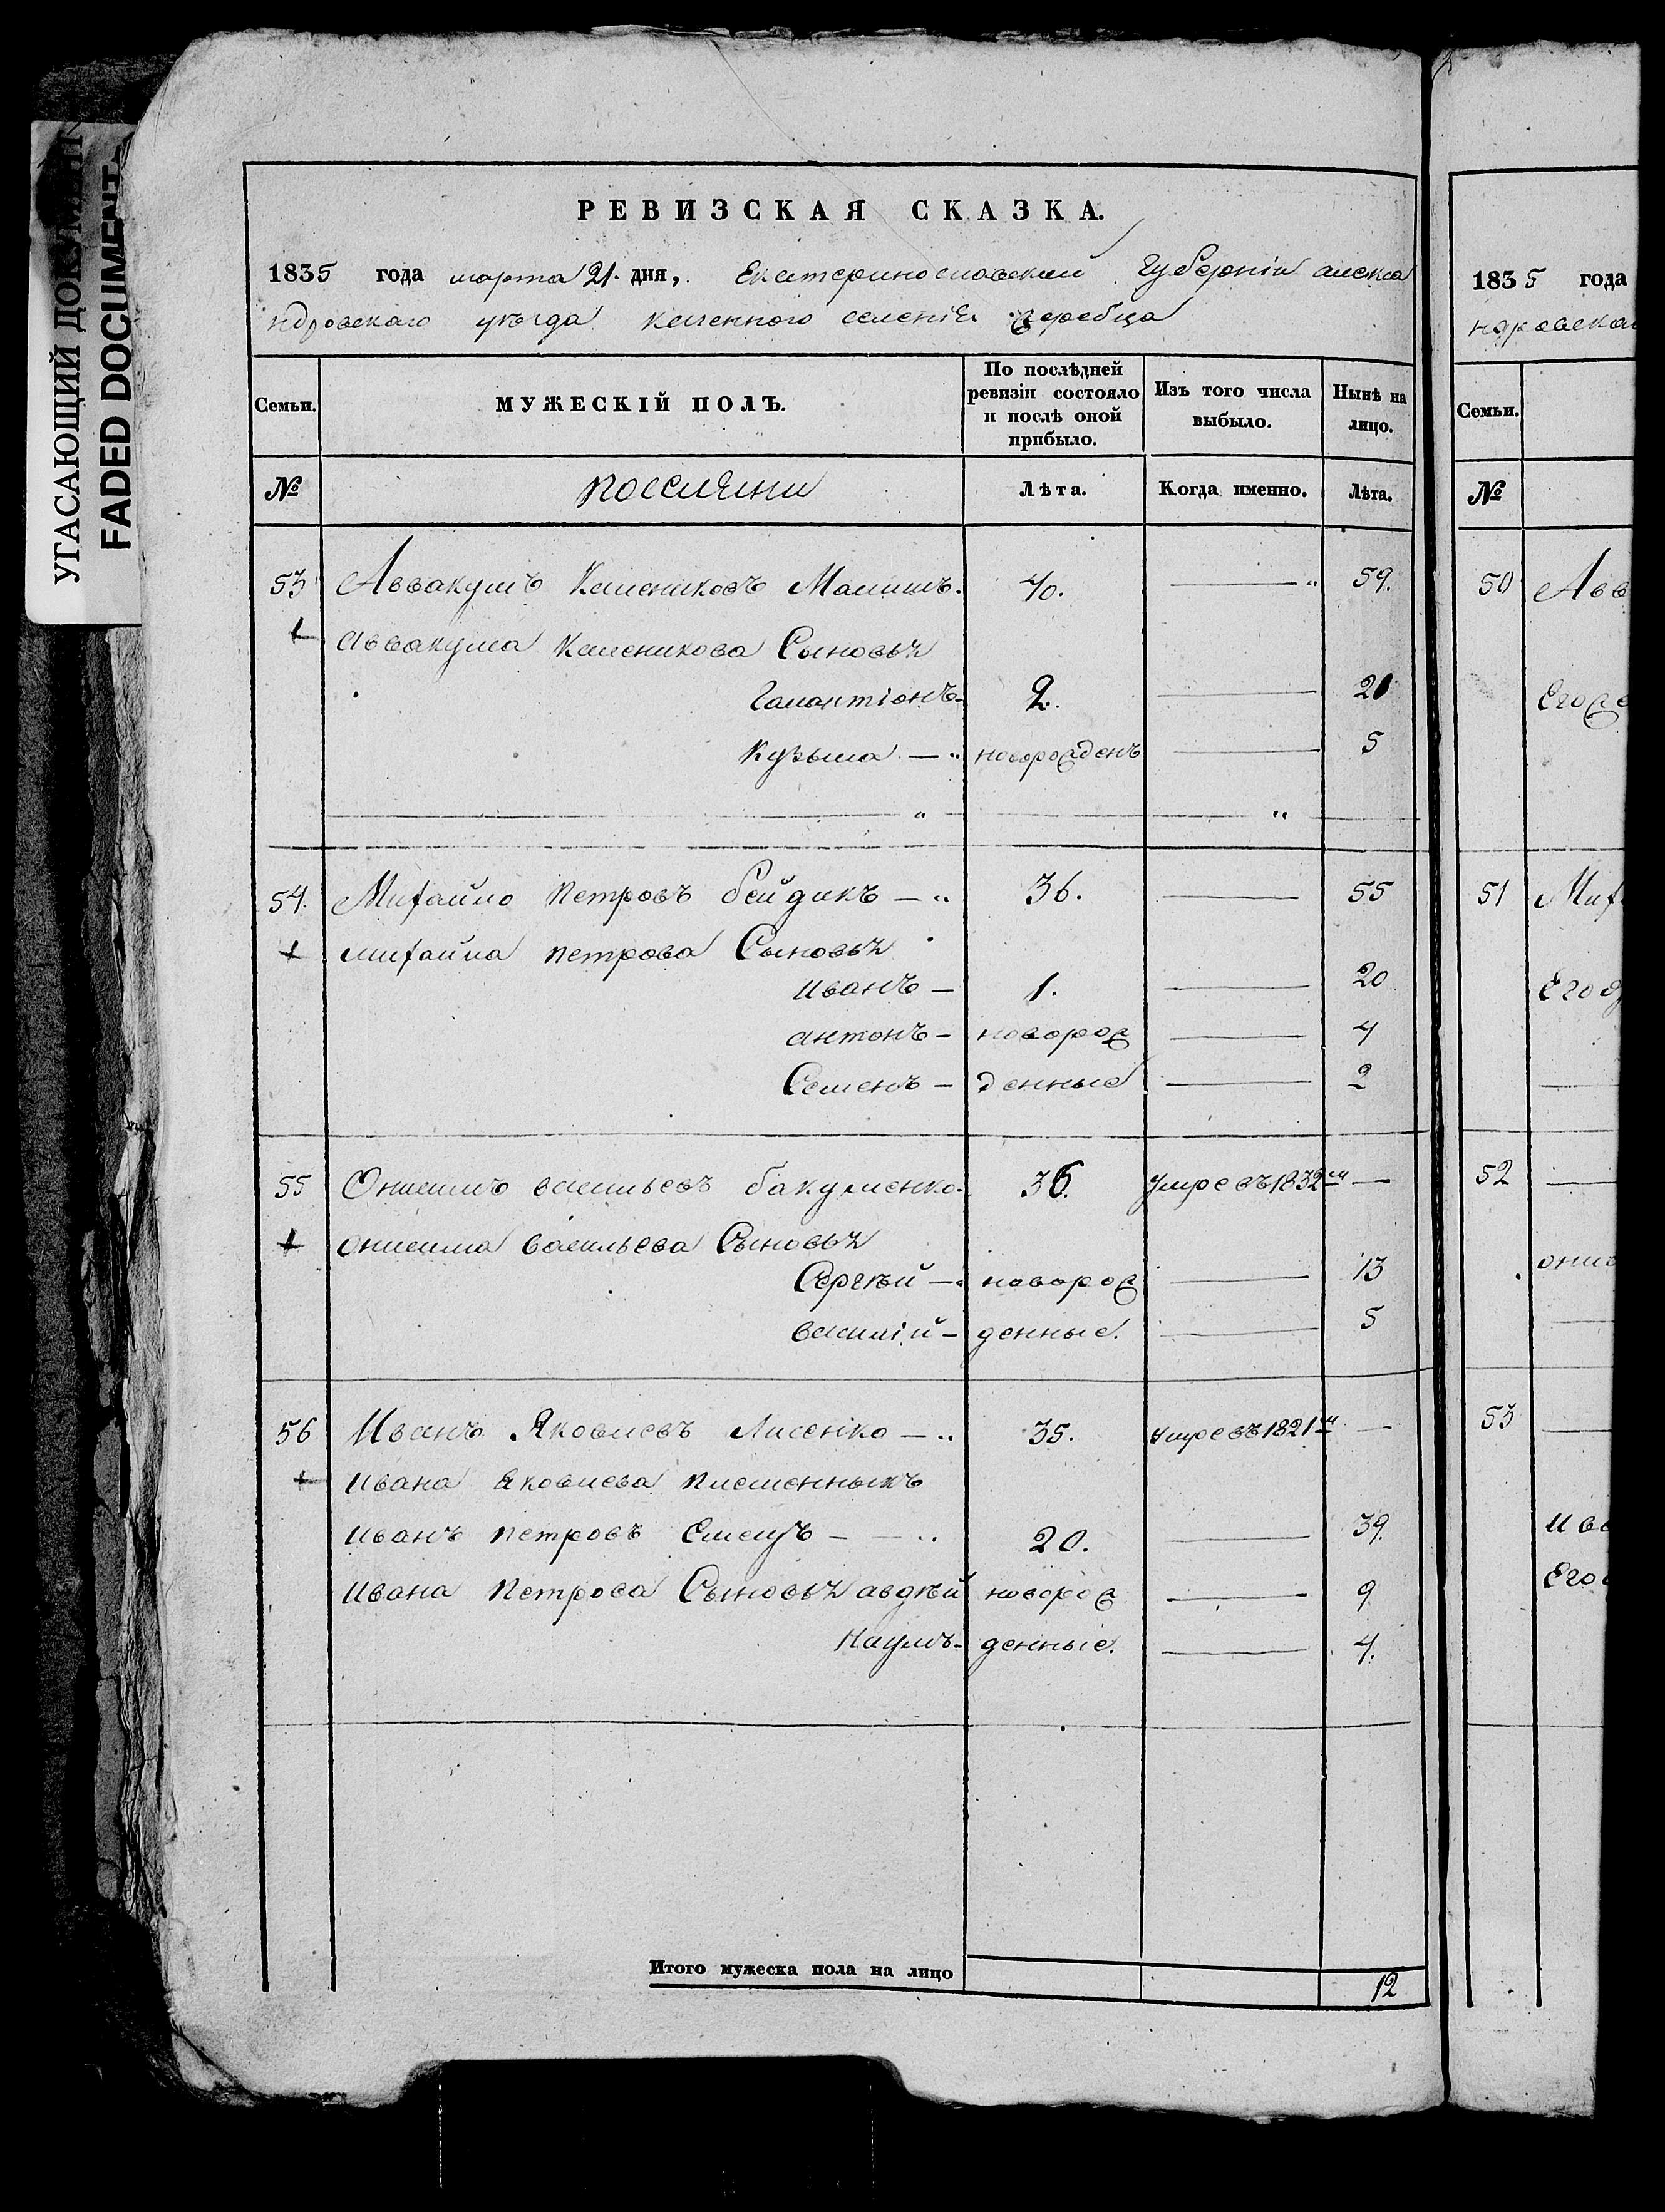 УГАСАЮЩИЙ ДОКУМЕНТ
FADED DOCUMENT
РЕВИЗСКАЯ СКАЗКА.
1835 года марта 21. дня, Екатеринославской Губерніи алекса
ндровского уѣзда казенного селенія жеребца
Семьи. МУЖЕСКІЙ ПОЛЪ. По послѣдней ревизіи состояло и послѣ оной прибыло. Изъ того числа выбыло. Нынѣ на лицо.
№ поселяни Лѣта. Когда именно. Лѣта.
53 Аввакумъ 40. — 59.
Аввакума Сыновья
2. — 21
Кузьма — новорожденъ — 5
54. Михайло Петровъ — 36. — 55
михайла петрова Сыновья
иванъ — 1. — 20
антонъ — новорож — 4
Семенъ — денные — 2
55 Онисимъ васильевъ бакуменко. 36. умре въ 1832м —
онисима васильева Сыновья
Сергѣй — новорож — 13
василій — денные. — 5
56 Иванъ Яковлевъ Лисенко — 35. умре въ 1821м —
ивана яковлева племенникъ
иванъ петровъ — 20. — 39.
ивана петрова Сыновья авдѣй новорож — 9
наумъ — денные. — 4.
Итого мужеска пола на лицо 12
1835 года
ндровска
Семьи.
№
50 Авв
51 Мих
52 —
они
53 —
ива